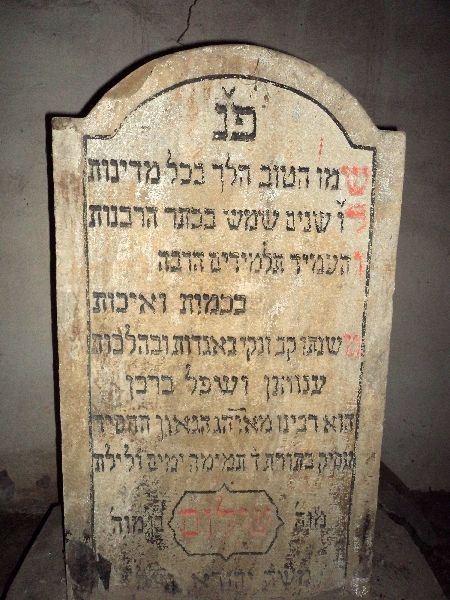 פ״נ
שמו הטוב הלך בכל מדינות
שנים שמש בכתר הרבנות
העמיד תלמידים הרבה
בכמות ואיכות
משנתו קב ונקי באגדות ובהלכות
ענותן ושפל ברכן
הוא רבינו מאוה״ג הגאון החסיד
עסק בתורת ד׳ תמימה ימים ולילת
מוה׳ שלום
משה יהודא